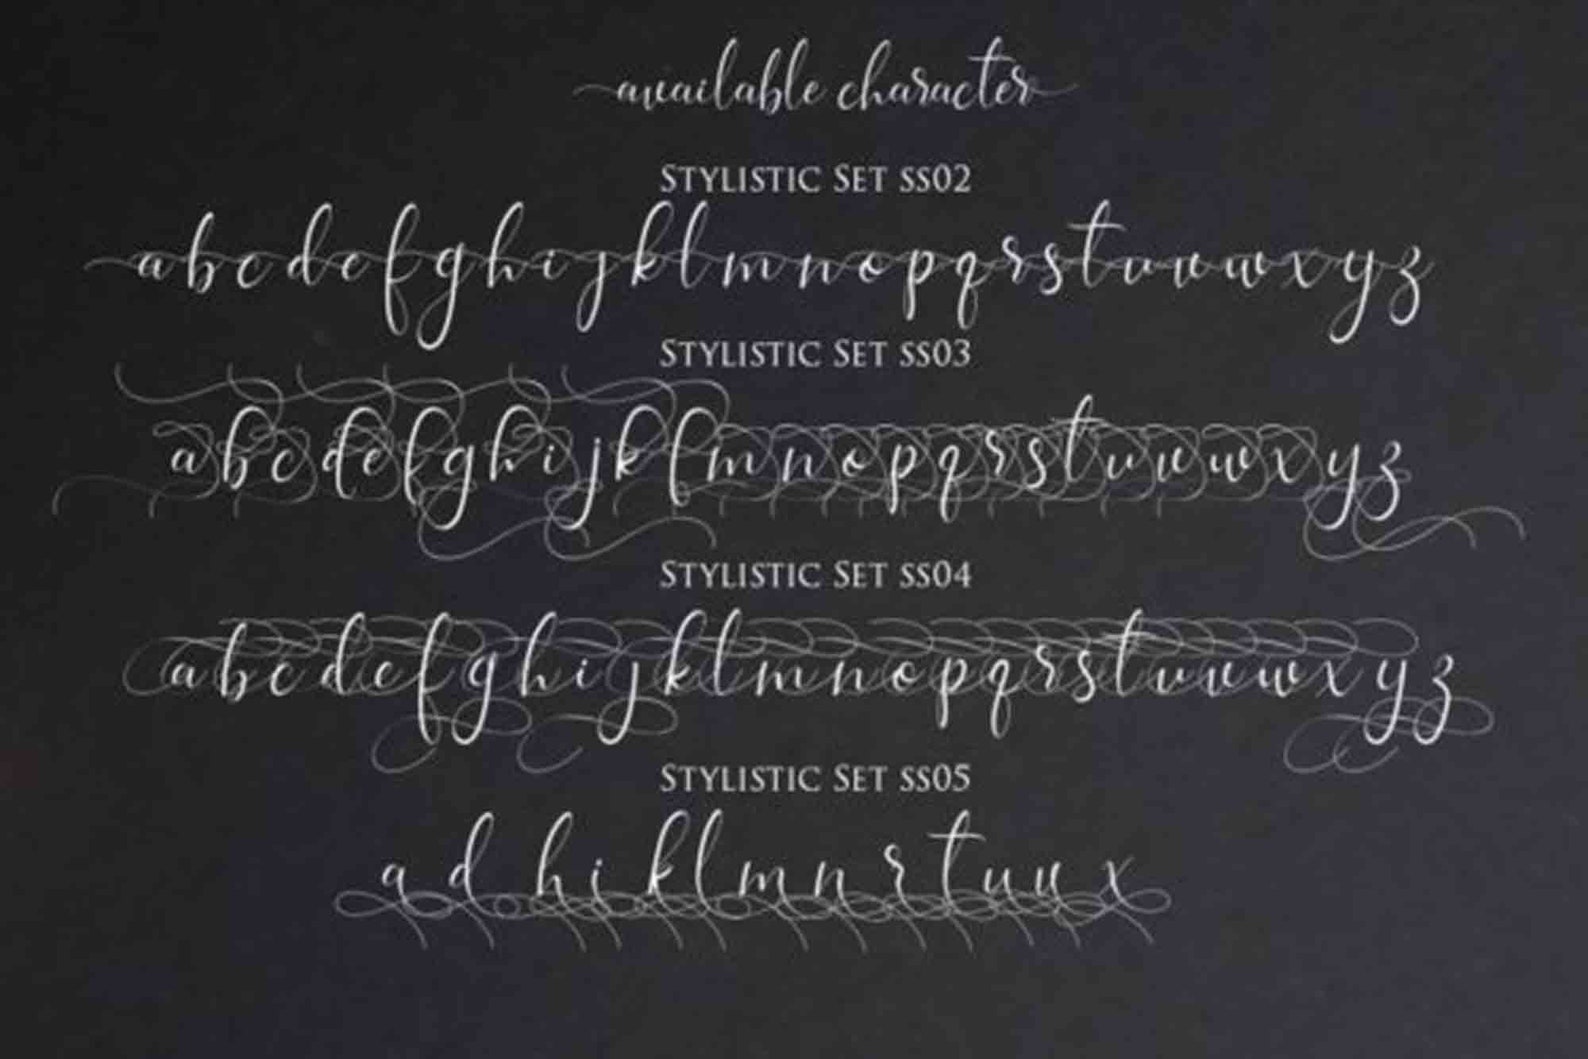 available character
STYLISTIC SET SS02
a b c d e f g h i j k l m n o p q r s t u v w x y z
STYLISTIC SET SS03
a b c d e f g h i j k l m n o p q r s t u v w x y z
STYLISTIC SET SS04
a b c d e f g h i j k l m n o p q r s t u v w x y z
STYLISTIC SET SS05
a d h i k l m n r t u u x